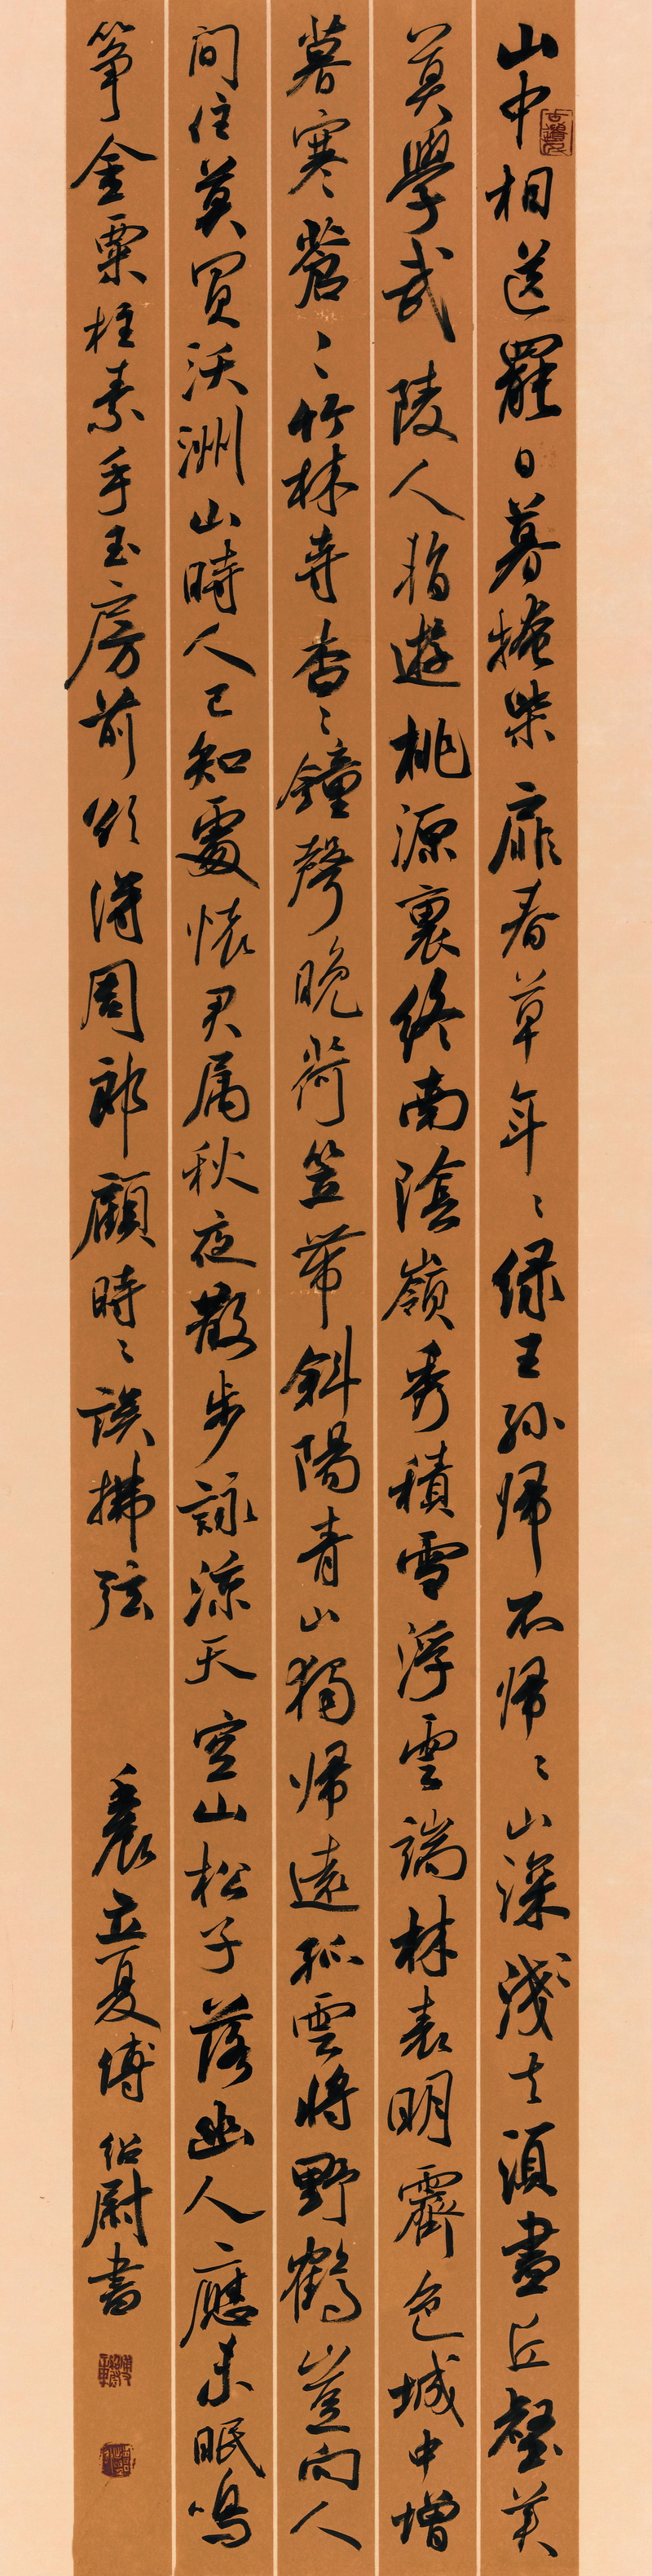 山中相送罷日暮掩柴扉春草年〻綠王孫歸不歸〻山深淺去須盡丘壑美
莫學武陵人暫遊桃源裏終南陰嶺秀積雪浮雲端林表明霽色城中增
暮寒蒼〻竹林寺杳〻鐘聲晚荷笠帶斜陽青山獨歸遠孤雲將野鶴豈向人
間住莫買沃洲山時人已知處懷君屬秋夜散步詠涼天空山松子落幽人應未眠鳴
箏金粟柱素手玉房前欲得周郎顧時〻誤拂弦
立夏傅紹尉書